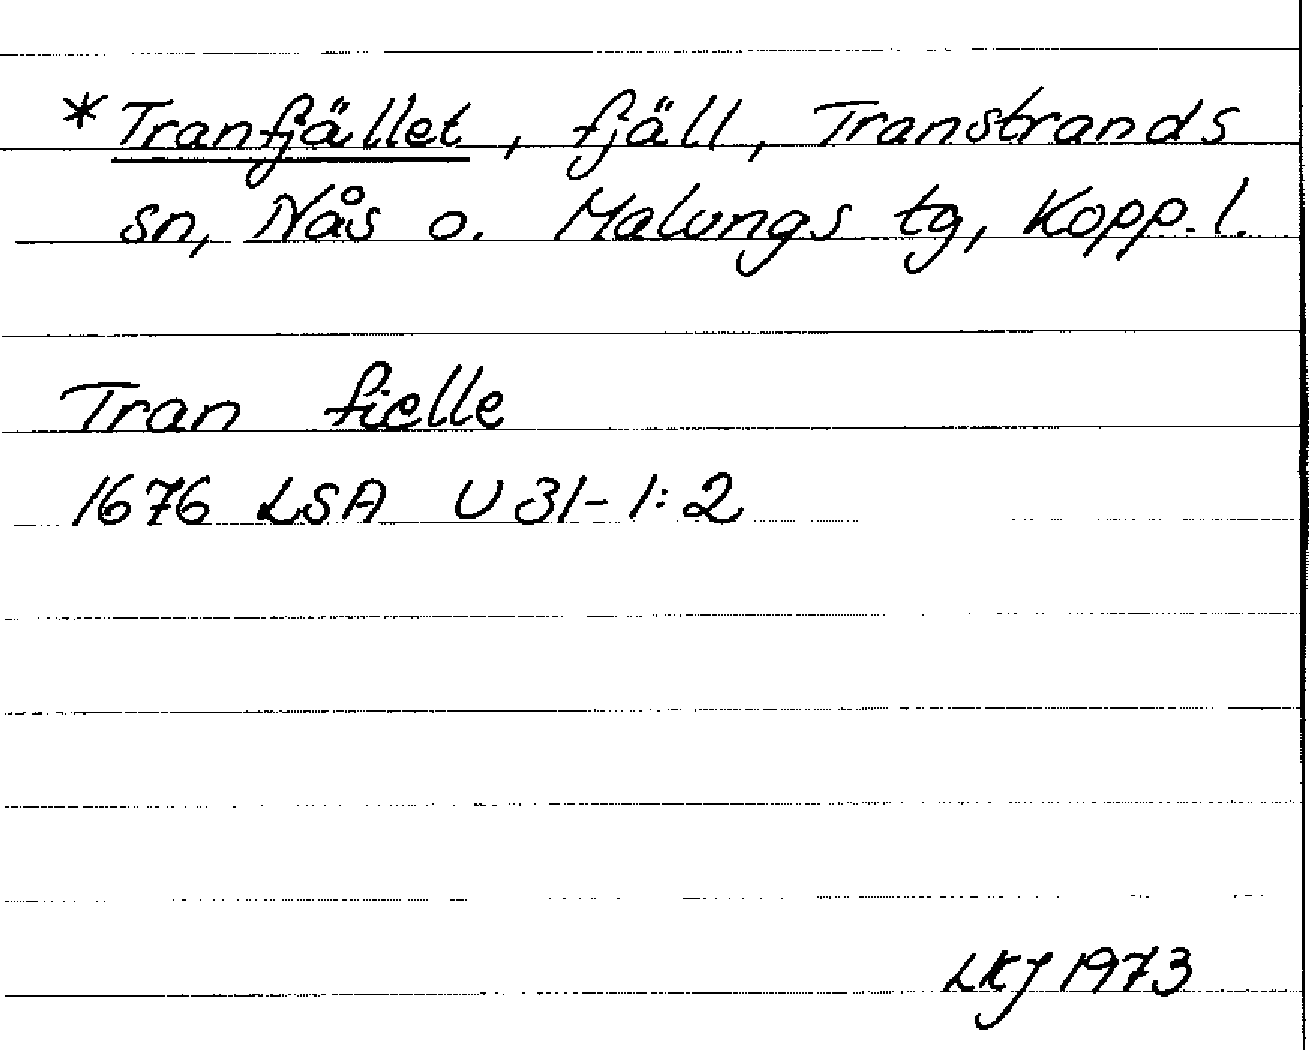 *Tranfjället, fjäll, Transtrands
sn, Nås o. Malungs tg, Kopp. l.
Tran fielle
1676 LSA U 31-1:2
LKJ 1973